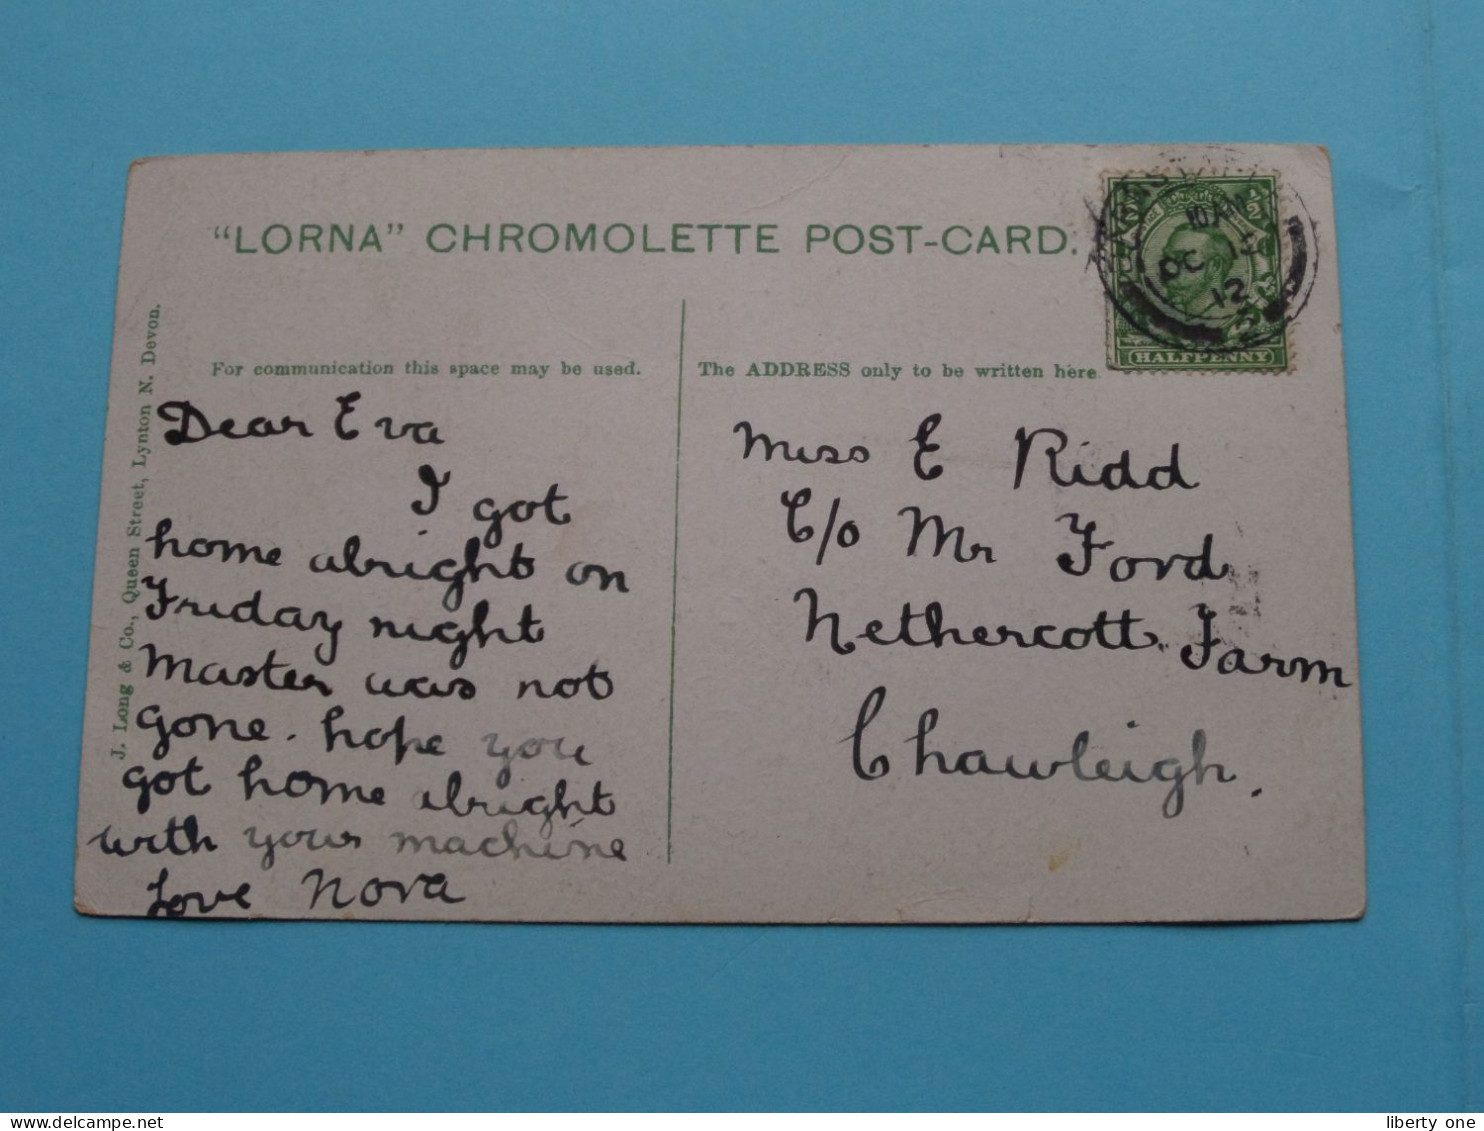 "LORNA" CHROMOLETTE POST-CARD.
For communication this space may be used.
The ADDRESS only to be written here
J. Long & Co., Queen Street, Lynton N. Devon.
Dear Eva
I got
home alright on
Friday night
Master was not
gone. hope you
got home alright
with your machine
Love Nova
Miss E Ridd
C/o Mr Ford
Nethercott Farm
Chawleigh.
10 AM
OC 15
12
1/2
HALFPENNY
liberty one